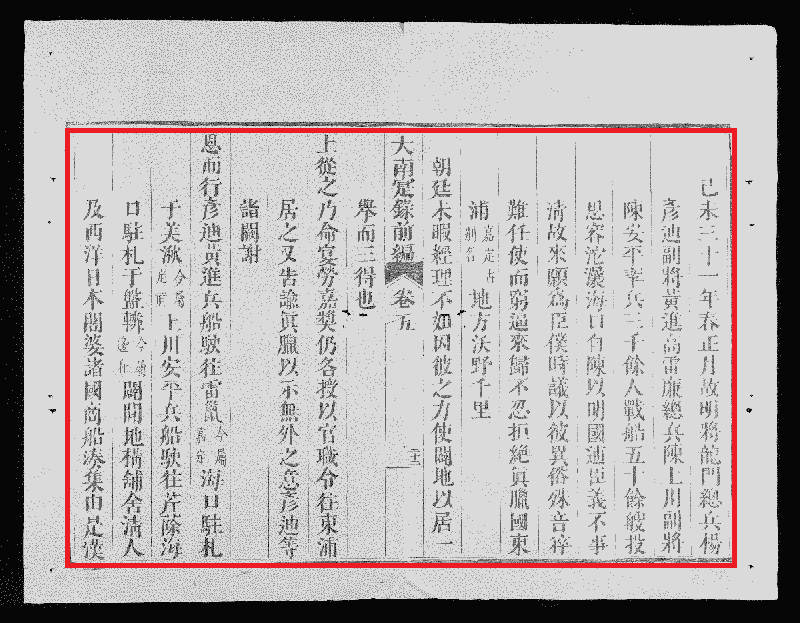 己未三十一年春正月故明將龍門總兵楊
彥迪副將黃進高雷廉總兵陳上川副將
陳安平率兵三千餘人戰船五十餘艘投
思容沱㶞海口自陳以明國逋臣義不事
清故來願爲臣僕時議以彼異俗殊音猝
難任使而窮逼來歸不忍拒絕眞臘國東
浦嘉定古別名地方沃野千里
朝廷未暇經理不如因彼之力使闢地以居一
大南寔錄前編 卷五
舉而三得也
上從之乃命宴勞嘉奬仍各授以官職令往東浦
居之又告諭眞臘以示無外之意彥迪等
詣闕謝
恩而行彥迪黃進兵船駛往雷巤今屬嘉定海口駐札
于美湫今屬定祥上川安平兵船駛往芹蒢海
口駐札于盤轔今屬邊和闢閒地構舖舍清人
及西洋日本闍婆諸國商船湊集由是漢